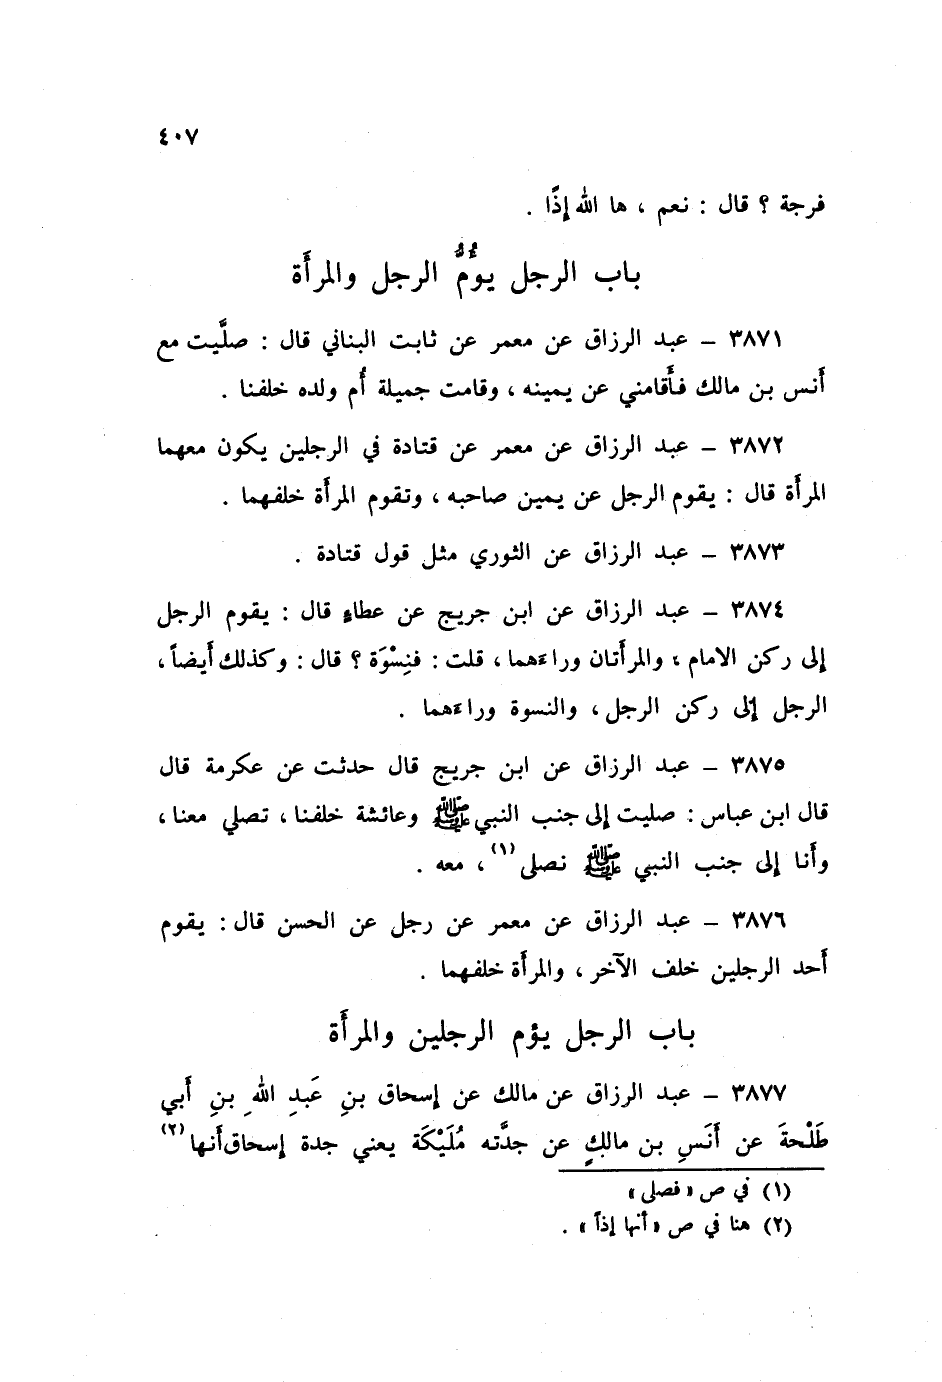 ٤٠٧
فرجة ؟ قال : نعم ، ها الله إذًا .
باب الرجل يؤُمُّ الرجل والمرأَة
٣٨٧١ – عبد الرزاق عن معمر عن ثابت البناني قال : صلَّيت مع
أَنس بن مالك فأَقامني عن يمينه ، وقامت جميلة أُم ولده خلفنا .
٣٨٧٢ – عبد الرزاق عن معمر عن قتادة في الرجلين يكون معهما
المرأَة قال : يقوم الرجل عن يمين صاحبه ، وتقوم المرأَة خلفهما .
٣٨٧٣ – عبد الرزاق عن الثوري مثل قول قتادة .
٣٨٧٤ – عبد الرزاق عن ابن جريج عن عطاءٍ قال : يقوم الرجل
إلى ركن الامام ، والمرأَتان وراءهما ، قلت : فنِسْوَة ؟ قال : وكذلك أَيضاً ،
الرجل إلى ركن الرجل ، والنسوة وراءهما .
٣٨٧٥ – عبد الرزاق عن ابن جريج قال حدثت عن عكرمة قال
قال ابن عباس : صليت إلى جنب النبي ﷺ وعائشة خلفنا ، تصلي معنا ،
وأَنا إلى جنب النبي ﷺ نصلى (١) ، معه .
٣٨٧٦ – عبد الرزاق عن معمر عن رجل عن الحسن قال : يقوم
أَحد الرجلين خلف الآخر ، والمرأَة خلفهما .
باب الرجل يؤم الرجلين والمرأَة
٣٨٧٧ – عبد الرزاق عن مالك عن إسحاق بنِ عَبدِ اللهِ بنِ أَبي
طَلْحةَ عن أَنَسِ بن مالكٍ عن جدَّته مُلَيْكَة يعني جدة إسحاق أَنها (٢)
(١) في ص « فصلى »
(٢) هنا في ص « أنها إذاً » .